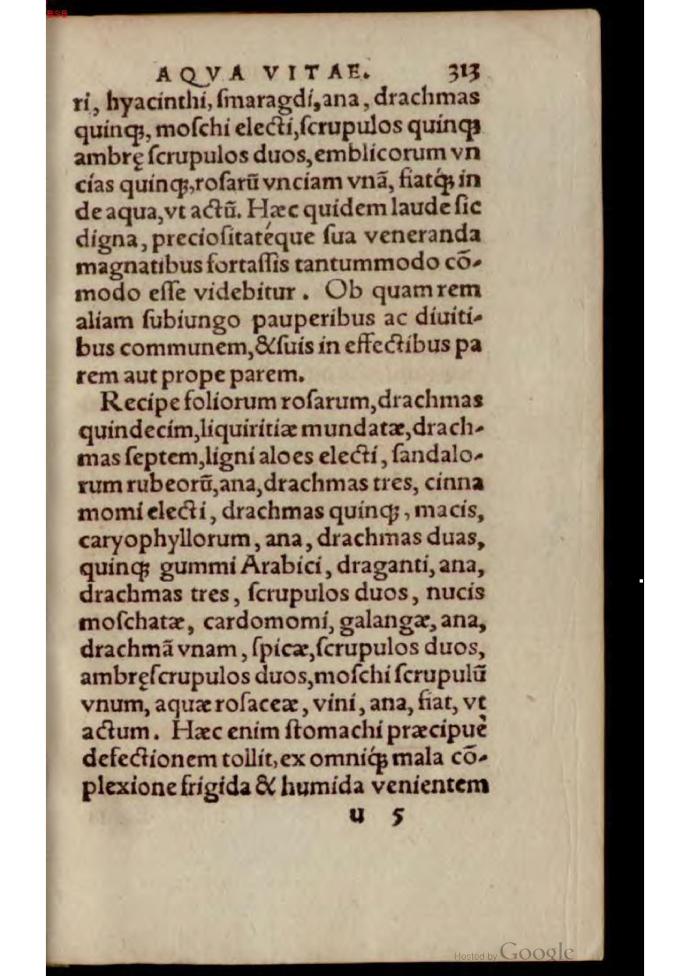 AQVA VITAE. 313
ri, hyacinthi, ſmaragdi, ana, drachmas
quinqꝫ, moſchi electi, ſcrupulos quinqꝫ
ambrę ſcrupulos duos, emblicorum vn
cias quinqꝫ, roſarũ vnciam vnã, fiatq́ꝫ in
de aqua, vt actũ. Hæc quidem laude ſic
digna, precioſitatéque ſua veneranda
magnatibus fortaſſis tantummodo cõ-
modo eſſe videbitur. Ob quam rem
aliam ſubiungo pauperibus ac diuiti-
bus communem, & ſuis in effectibus pa
rem aut prope parem.
Recipe foliorum roſarum, drachmas
quindecim, liquiritiæ mundatæ, drach-
mas ſeptem, ligni aloes electi, ſandalo-
rum rubeorũ, ana, drachmas tres, cinna
momi electi, drachmas quinqꝫ, macis,
caryophyllorum, ana, drachmas duas,
quinqꝫ gummi Arabici, draganti, ana,
drachmas tres, ſcrupulos duos, nucis
moſchatæ, cardomomi, galangæ, ana,
drachmã vnam, ſpicæ, ſcrupulos duos,
ambrę ſcrupulos duos, moſchi ſcrupulũ
vnum, aquæ roſaceæ, vini, ana, fiat, vt
actum. Hæc enim ſtomachi præcipuè
defectionem tollit, ex omniq́ꝫ mala cõ-
plexione frigida & humida venientem
u 5
Hosted by Google